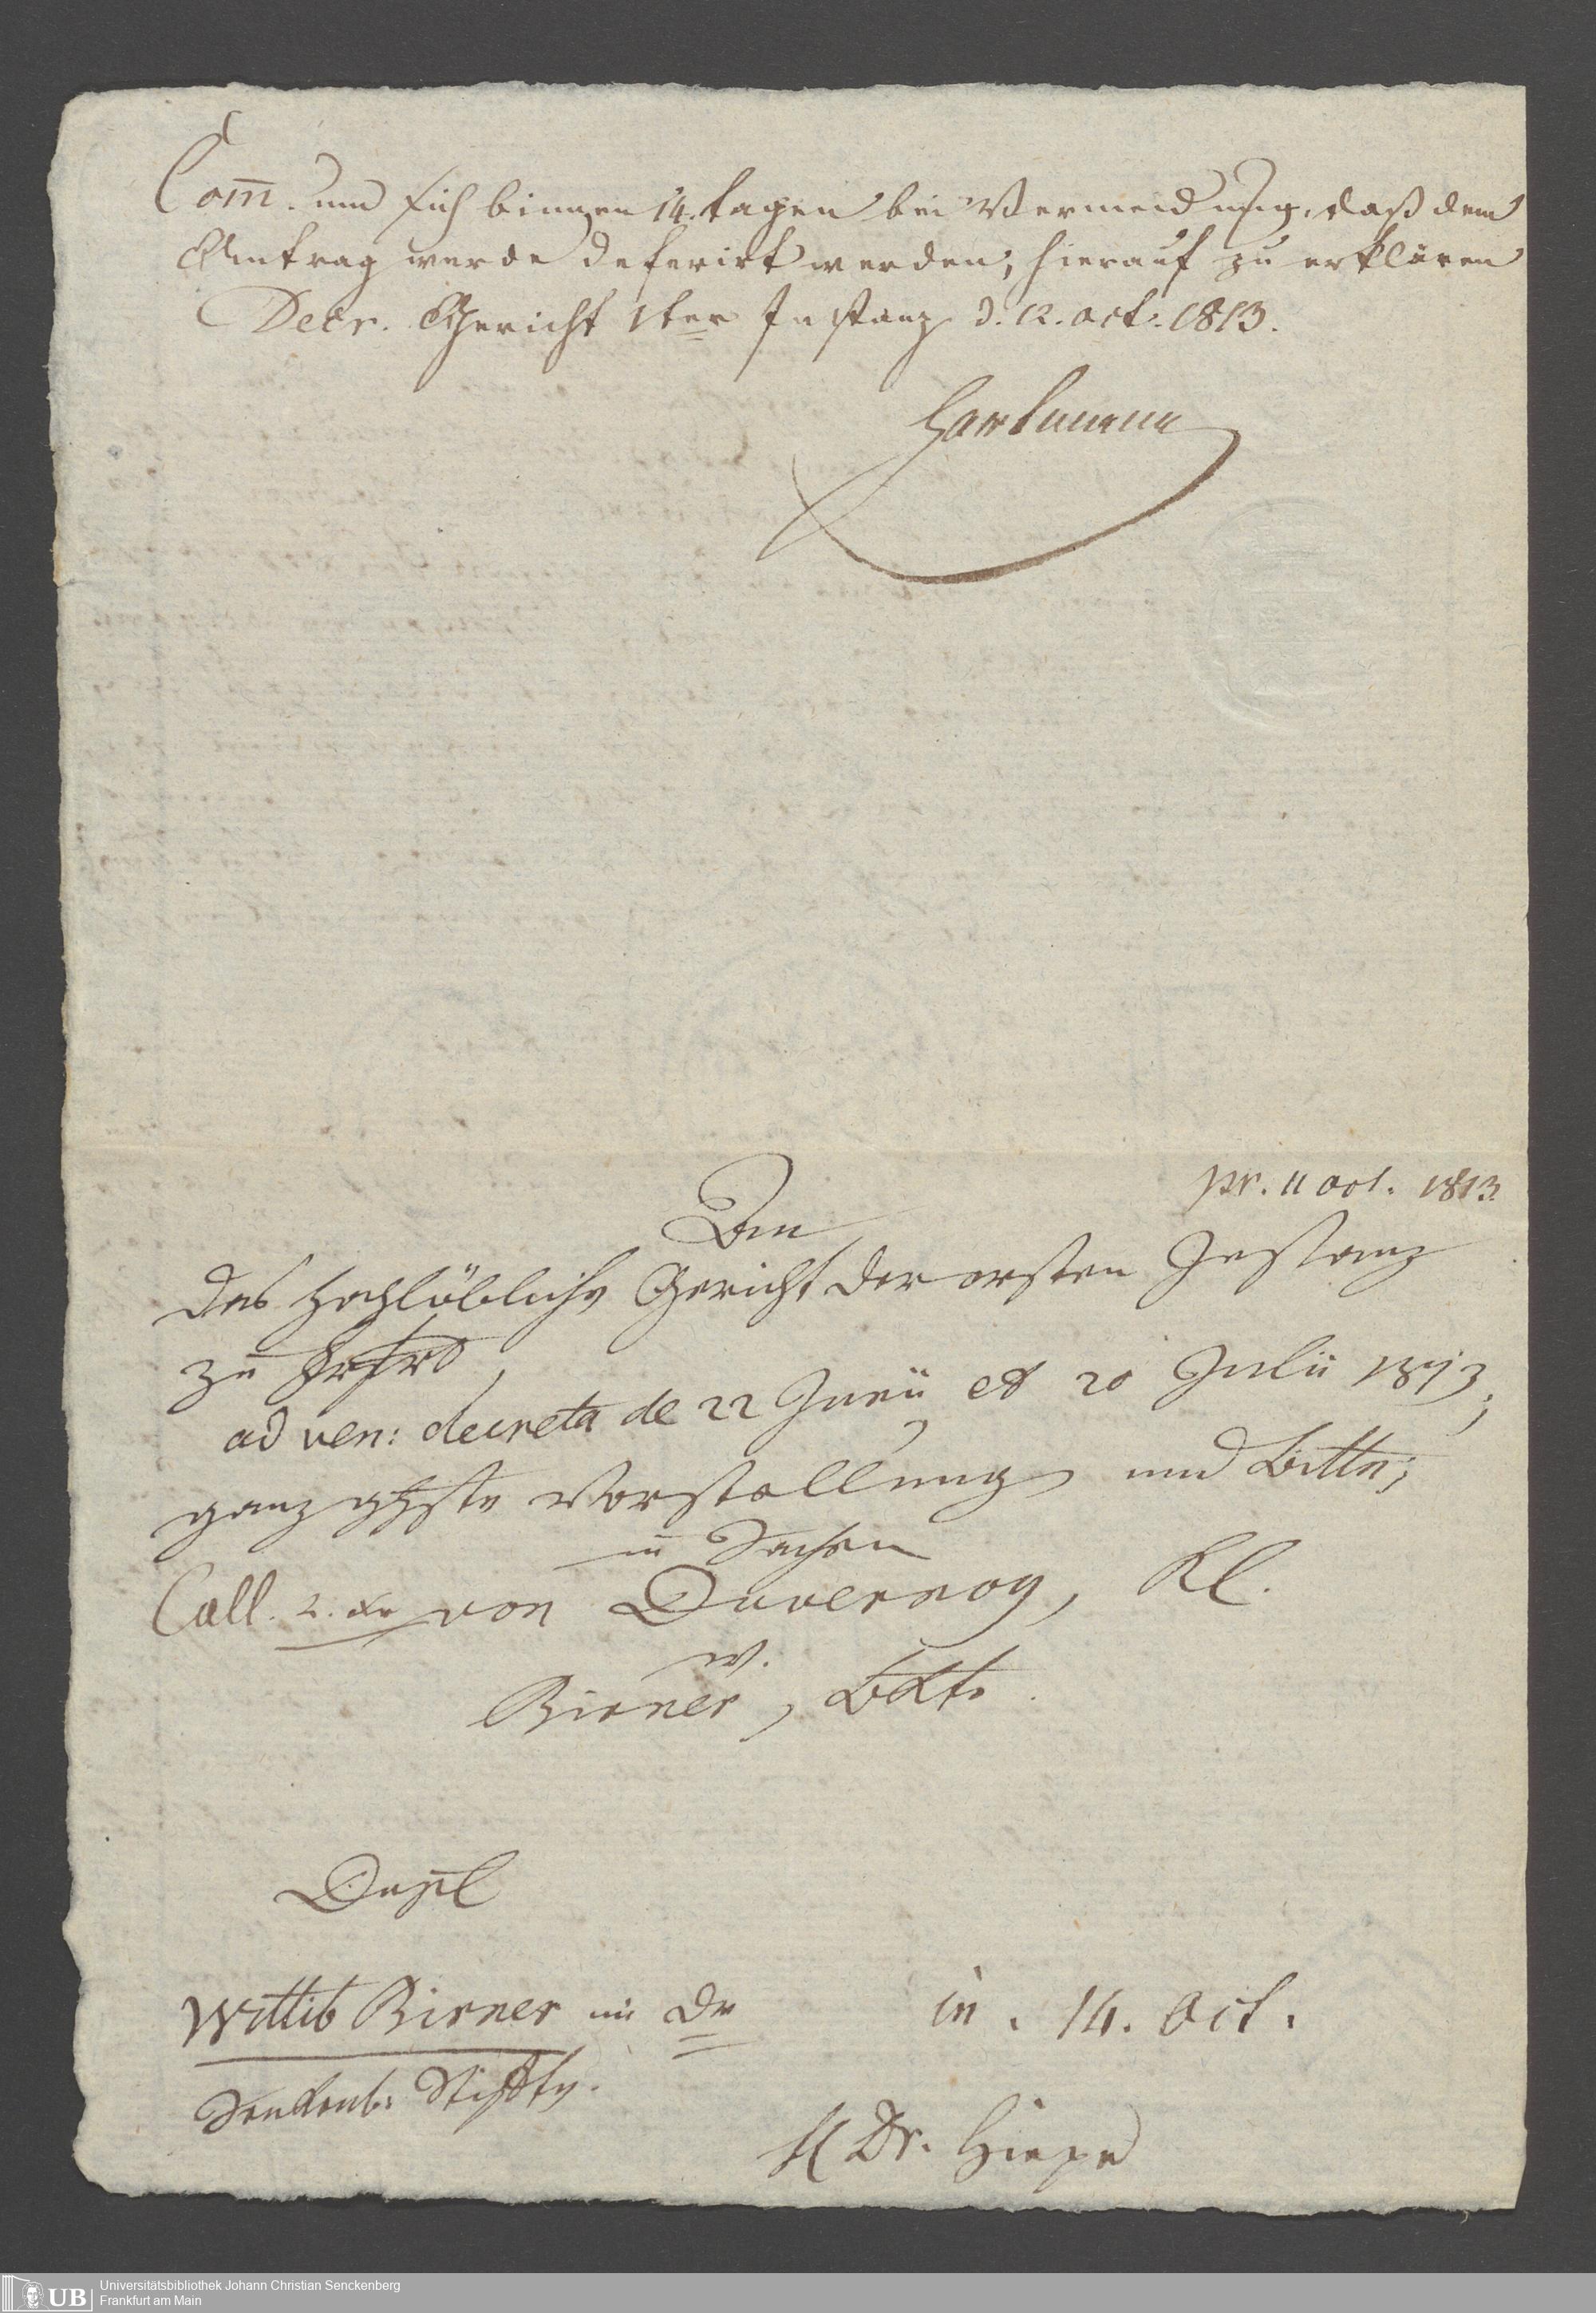 Com̅. um sich binnen 14. tagen bei Vermeidung, daß dem
Antrag werde deferirt werden, hierauf zu erklären
Decr. Gericht 1ter Instanz d. 12. oct. 1813.
Hartmann
pr. 11 oct. 1813
An
das hochlöbliche Gericht der ersten Instanz
zu Frfrt,
ad ven: decreta de 22 Junii et 20 Julii 1813,
ganz ghste Vorstellung und Bitte;
in Sachen
Coll. 2. xr von Duvernoy, Kl.
w.
Birner, Bkte.
Dupl
Wittib Birner im
Senkenb: Stifte.
in. 14. Oct.
H Dr. Hiepe
Universitätsbibliothek Johann Christian Senckenberg
Frankfurt am Main
UB